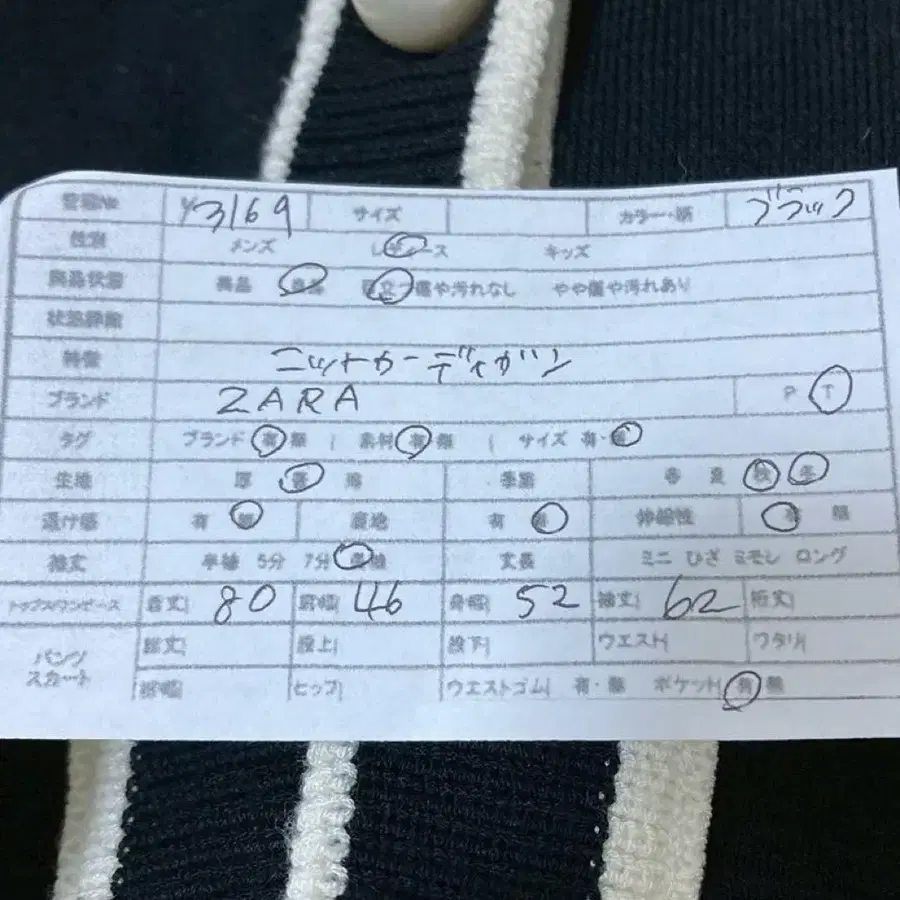 管理No ¥3169 サイズ カラー・柄 ブラック
性別 メンズ レディース キッズ
商品状態 美品 良品 目立つ傷や汚れなし やや傷や汚れあり
状態詳細
特徴 ニットカーディガン
ブランド ZARA P T
タグ ブランド 有 無 | 素材 有 無 | サイズ 有・無
生地 厚 普 薄 季節 春 夏 秋 冬
透け感 有 無 裏地 有 無 伸縮性 有 無
袖丈 半袖 5分 7分 長袖 丈長 ミニ ひざ ミモレ ロング
トップス/ワンピース 着丈| 80 肩幅| 46 身幅| 52 袖丈| 62 裄丈|
パンツ スカート 総丈| 股上| 股下| ウエスト| ワタリ|
裾幅| ヒップ| ウエストゴム| 有・無 ポケット| 有 無